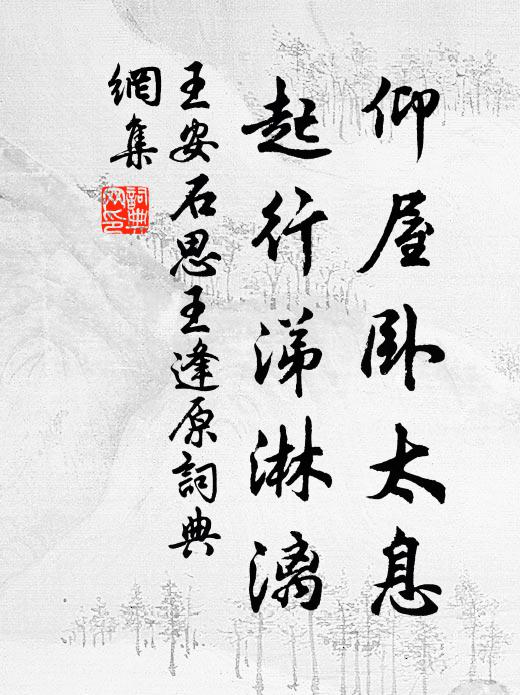 仰屋卧太息
起行涕淋漓
王安石思王逢原詞典
網集
詞典网印